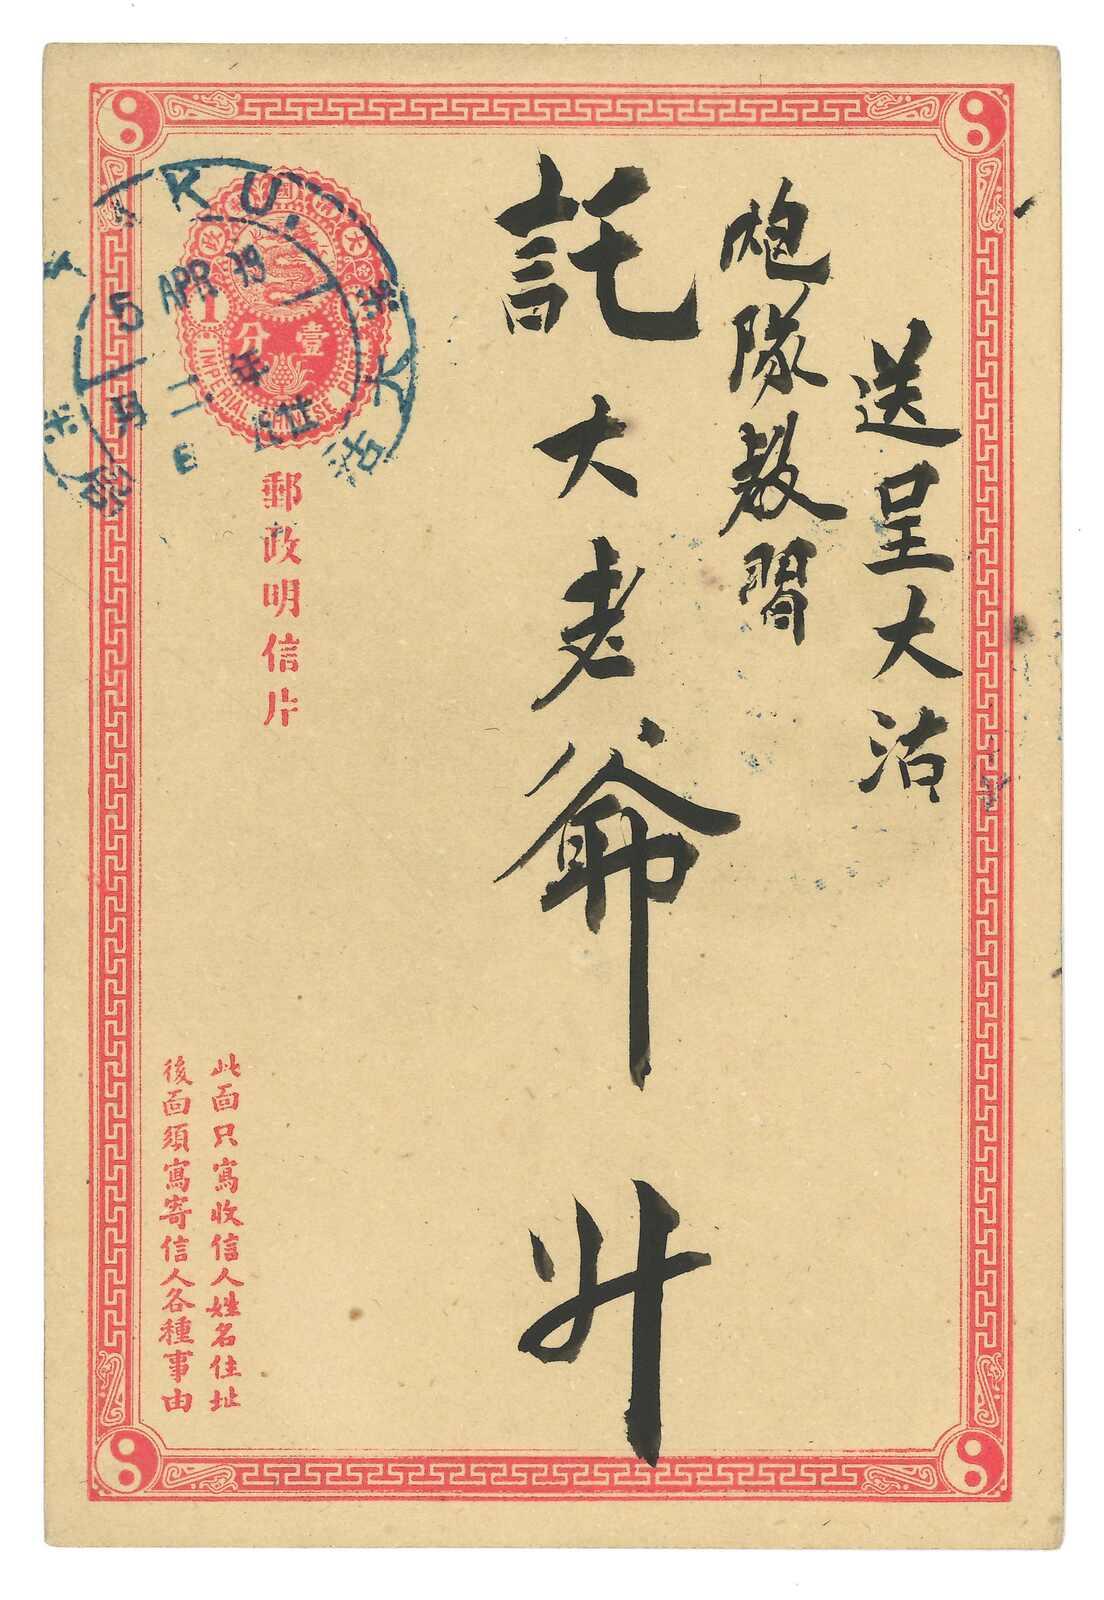 送呈大沽
炮隊教習
託大老爺升
大清國郵政
1
壹分
IMPERIAL CHINESE POST
郵政明信片
此面只寫收信人姓名住址
後面須寫寄信人各種事由
AKU.
5 APR
大沽
年
月
日